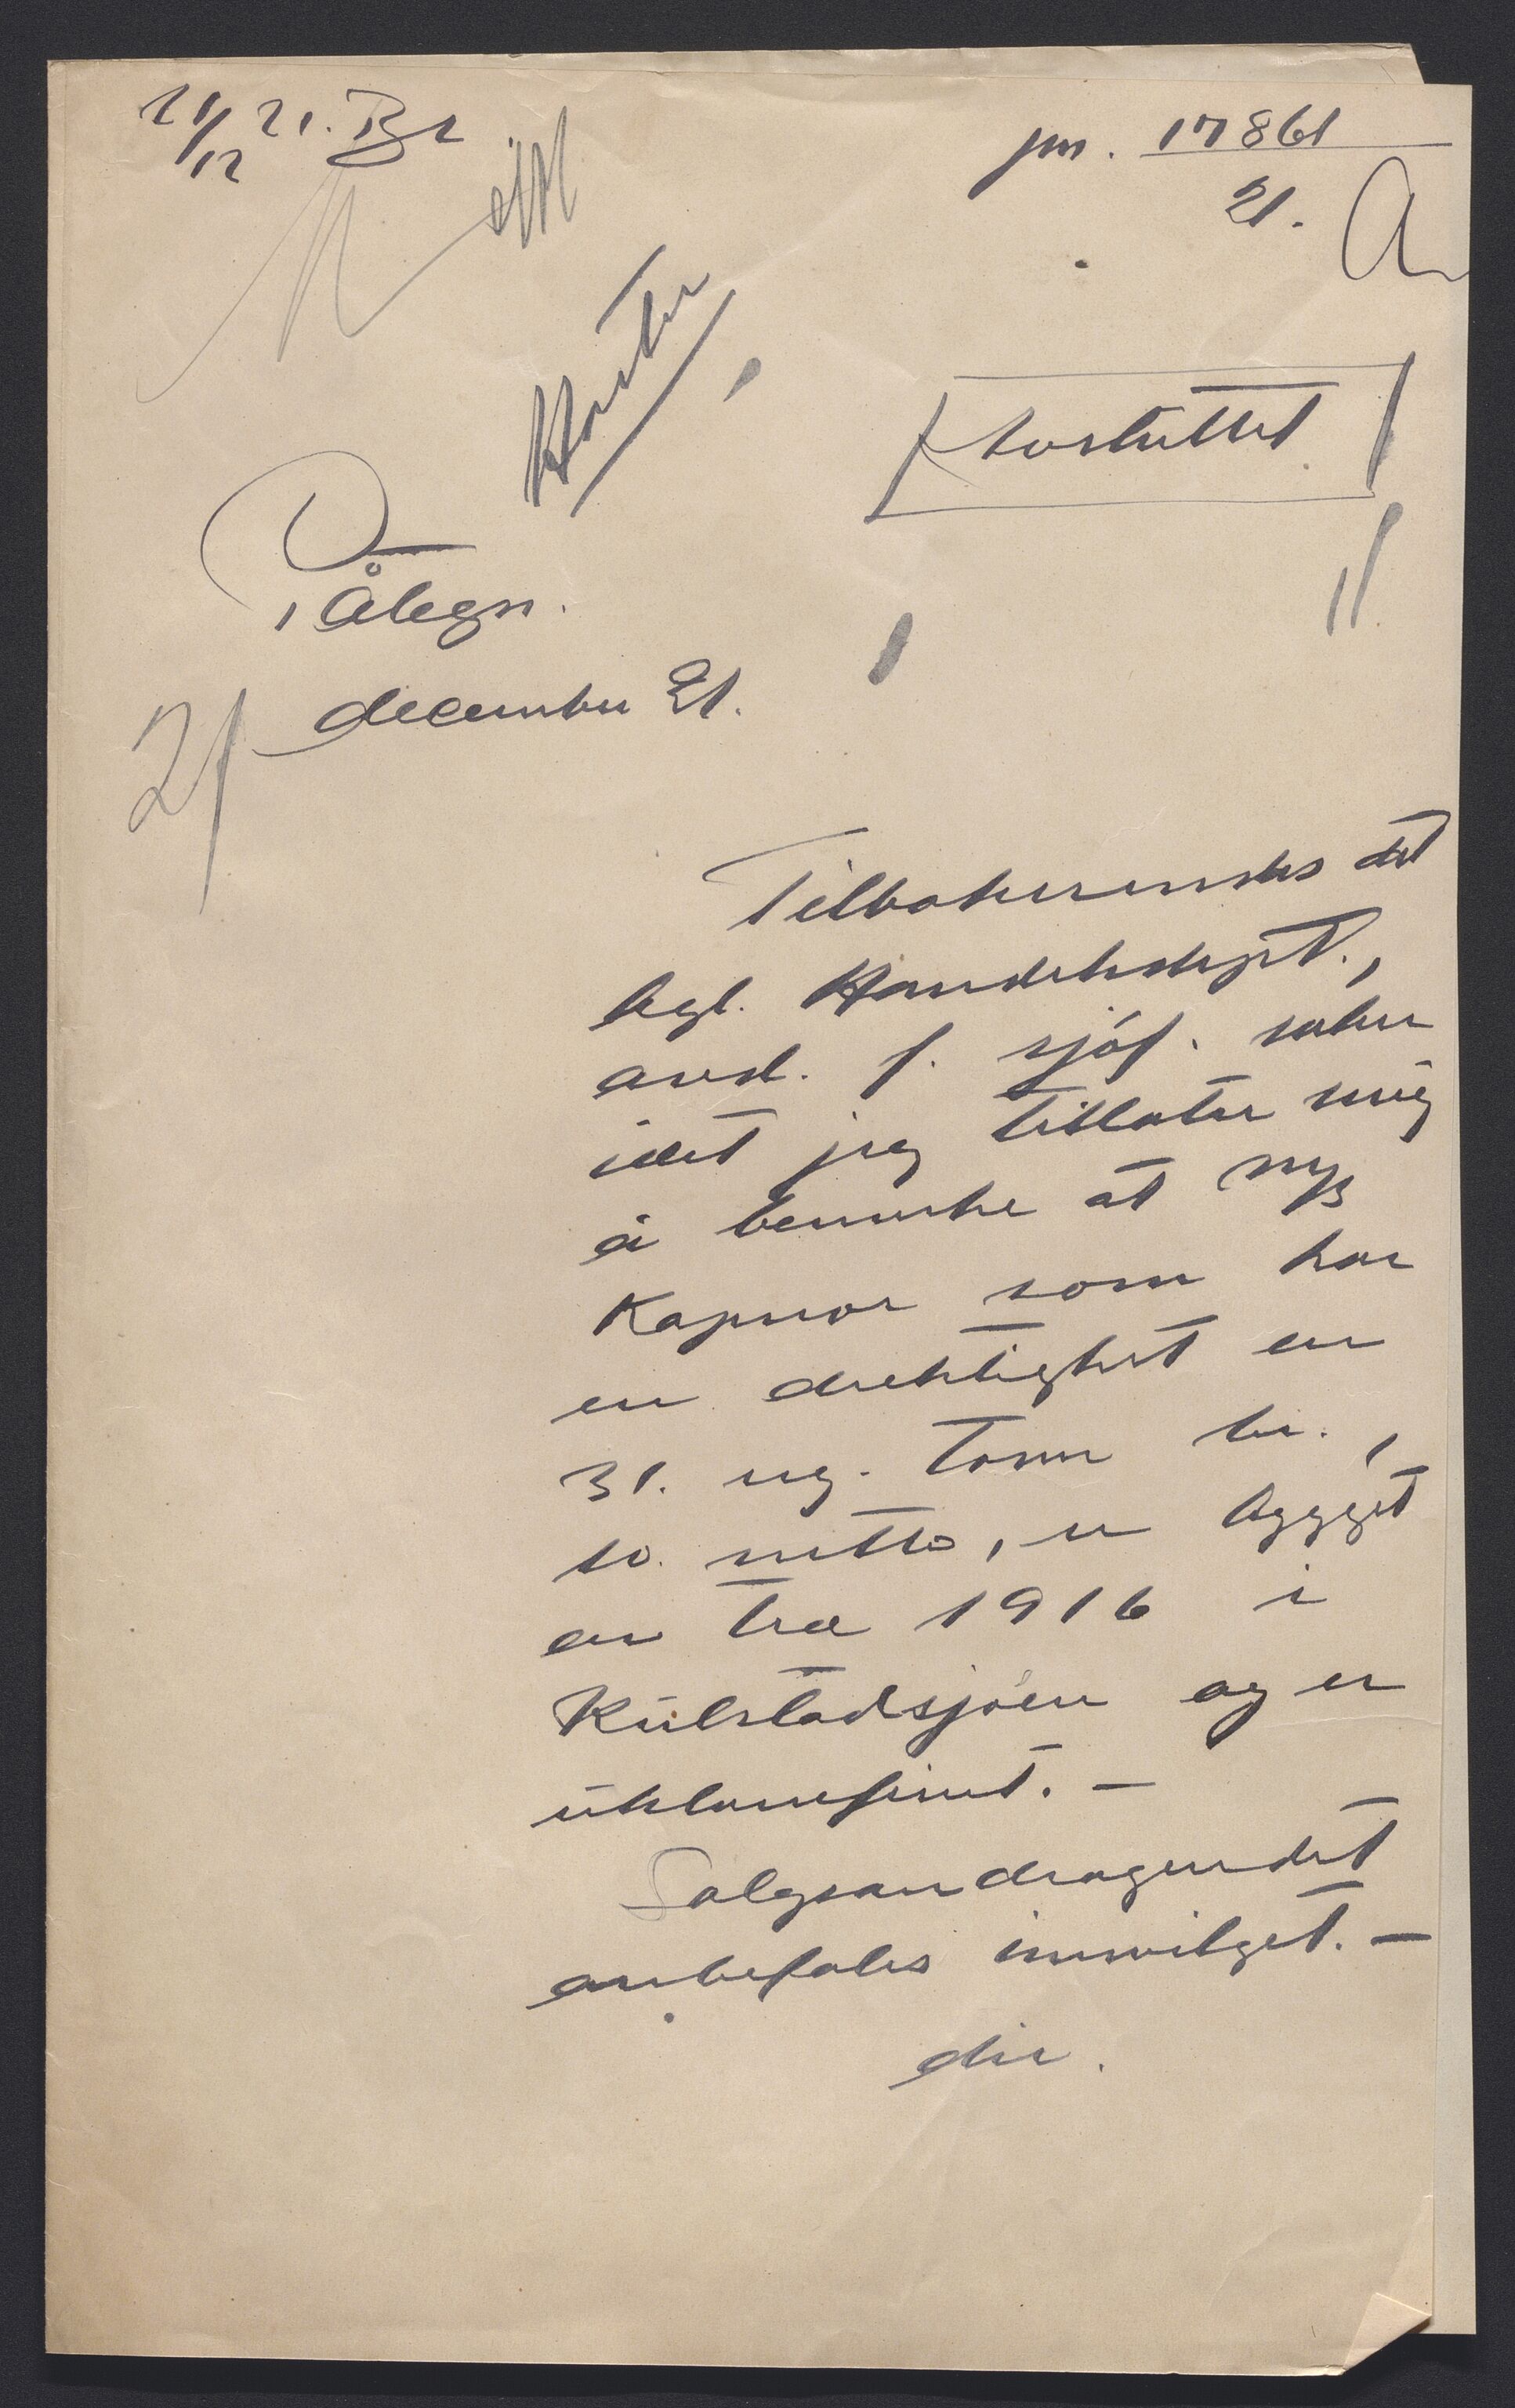 21/12 21. Br
jnr. 17861
21.
Haster
Avsluttet
Påtegn.
21 december 21.
Tilbakesendes det
kgl. Handelsdept.,
avd. f. sjöf. saker
idet jeg tillater mig
å bemerke at m/s
Kapnor som har
en drektighet av
31. reg. tonn br.,
10. netto, er bygget
av tre 1916 i
Kulstadsjöen og er
uklassifisert. -
Salgsandragendet
anbefales innvilget. -
dir.